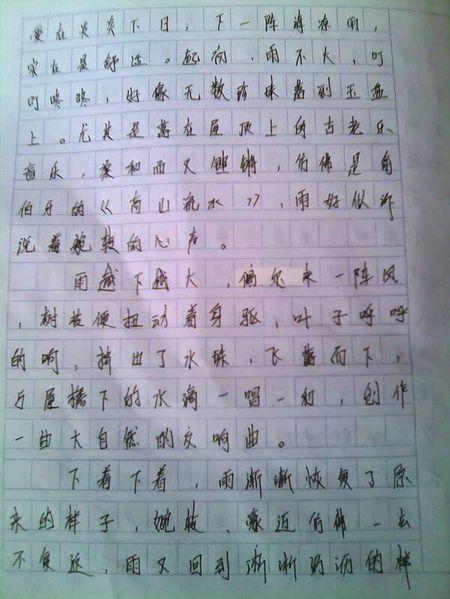 实在炎炎下日，下一阵滂沱雨，
实在是舒适。起初，雨不大，叮
叮咚咚，好像无数珍珠落到玉盘
上。尤其是落在屋顶上的古老乐
音乐，柔和而又铿锵，仿佛是俞
伯牙的《高山流水》，雨好似诉
说着的心声。
雨越下越大，偶尔来一阵风
，树枝便扭动着身躯，叶子呼呼
的响，掉出了水珠，飞落而下，
与屋檐下的水滴一唱一和，创作
一曲大自然的交响曲。
下着下着，雨渐渐恢复了原
来的样子，婉转、亲近仿佛一去
不复返，雨又回到淅淅沥沥的样